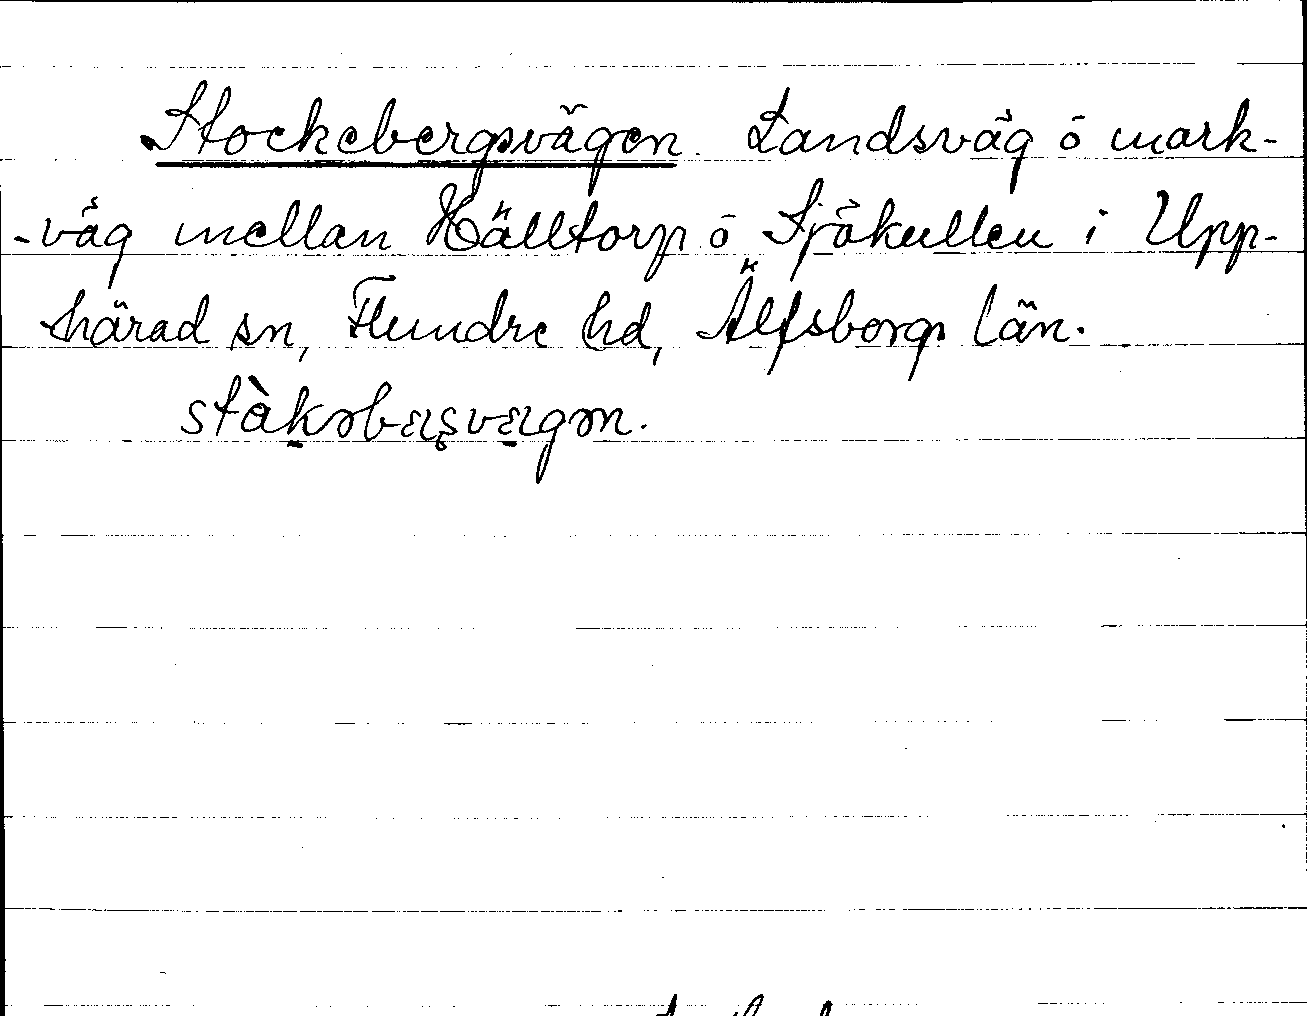 Stockebergsvägen. Landsväg ö mark-
-väg mellan Hälltorp ö Sjökullen i Upp-
härad sn, Flundre hd, Älfsborgs län.